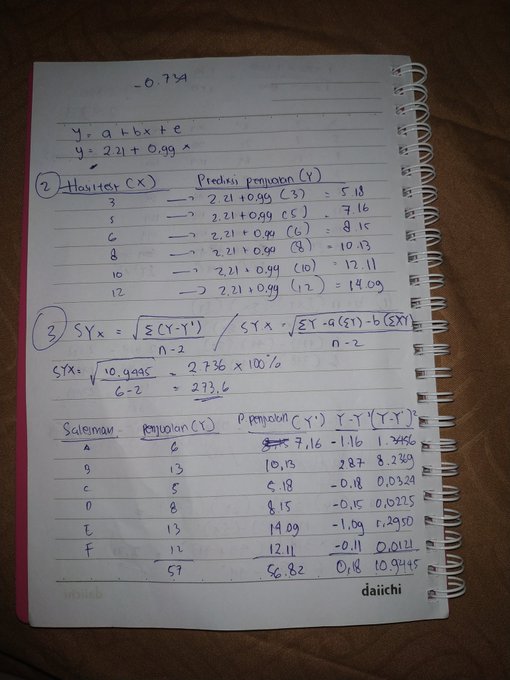 -0.734
Y = a + bx + e
y = 2.21 + 0,99 x
2 Hasil test (X) Prediksi penjualan (Y)
3 → 2.21 + 0,99 (3) = 5.18
5 → 2.21 + 0,99 (5) = 7.16
6 → 2.21 + 0,99 (6) = 8.15
8 → 2.21 + 0,99 (8) = 10.13
10 → 2.21 + 0,99 (10) = 12.11
12 → 2.21 + 0,99 (12) = 14.09
3 SYx = √Σ(Y-Y') / n-2 / SYx = √ΣY-a(ΣY)-b(ΣXY) / n-2
SYX = √10.9445 / 6-2 = 2.736 × 100%
= 273,6
Salesman Penjualan (Y) P.penjualan (Y') Y-Y' (Y-Y')²
A 6 7,16 -1.16 1.3456
B 13 10,13 2.87 8.2369
C 5 5.18 -0,18 0,0324
D 8 8.15 -0,15 0,0225
E 13 14.09 -1,09 1,2950
F 12 12.11 -0.11 0.0121
57 56.82 0,18 10.9445
daiichi
daiichi